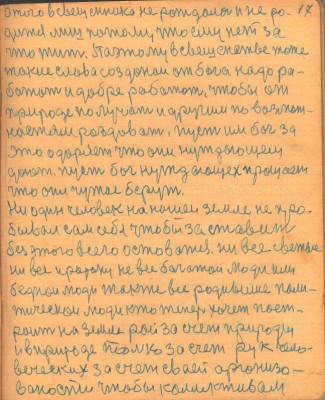 этого всвещенника не рождался и не ро- 17
дится лиш потому, что ему нет за
что жит. Паэтому всвещенстве тоже
такие слова создонаи от бога надо ра-
ботат и добре работат, чтобы от
природе получат и другим по возмож-
ностям роздоват. пуст им бог за
это одоряет что они нуждоющем
дают. пуст бог нуждающех прощает
что они чужое берут.
Ни один человек на нашей земле не про-
бывал сам себя чтобы заставит
без этого всего остоватся. ни все святые
ни все
не все богатои люди или
беднои люди также все родившие поли-
тическои люди кто тепер хочет пост-
роит на земле рай за счет природы
и вприроде толко за счет рук чело-
веческих за счет своей
организо-
ваности чтобы коллективам